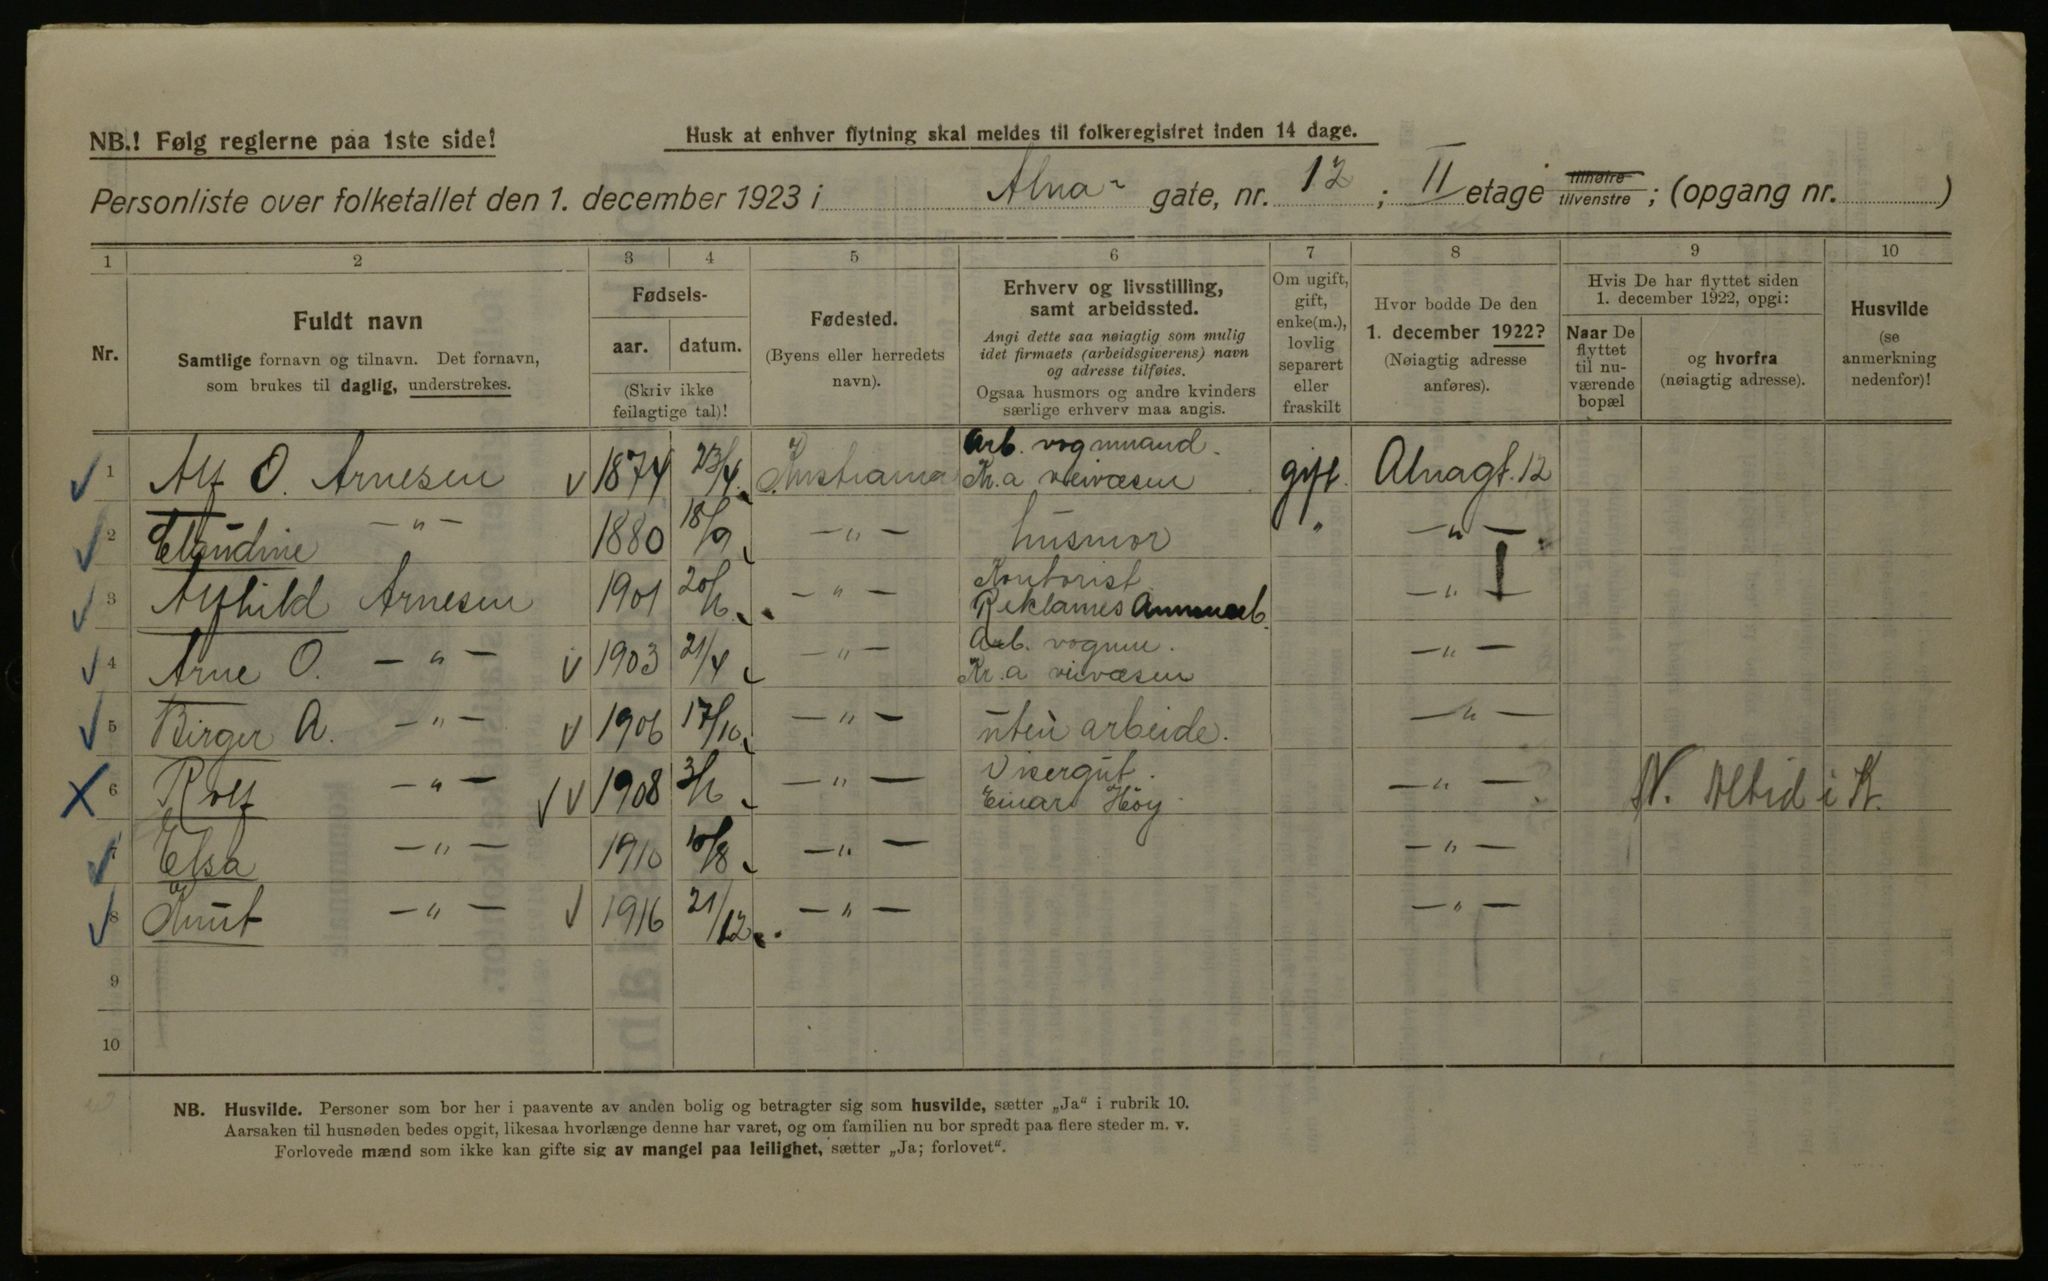 NB.! Følg reglerne paa 1ste side!
Husk at enhver flytning skal meldes til folkeregistret inden 14 dage.
Personliste over folketallet den 1. december 1923 i Alna- gate, nr. 12; II etage tilhøire tilvenstre; (opgang nr. )
1 2 3 4 5 6 7 8 9 10
Nr.
Fuldt navn
Samtlige fornavn og tilnavn. Det fornavn,
som brukes til daglig, understrekes.
Fødsels-
aar. datum.
(Skriv ikke
feilagtige tal)!
Fødested.
(Byens eller herredets
navn).
Erhverv og livsstilling,
samt arbeidssted.
Angi dette saa nøiagtig som mulig
idet firmaets (arbeidsgiverens) navn
og adresse tilføies.
Ogsaa husmors og andre kvinders
særlige erhverv maa angis.
Om ugift,
gift,
enke(m.),
lovlig
separert
eller
fraskilt
Hvor bodde De den
1. december 1922?
(Nøiagtig adresse
anføres).
Hvis De har flyttet siden
1. december 1922, opgi:
Naar De
flyttet
til nu-
værende
bopæl
og hvorfra
(nøiagtig adresse).
Husvilde
(se
anmerkning
nedenfor)!
1 Alf O. Arnesen 1874 23/4 Kristiania Arb. vognmand. Kr.a veivæsen gift. Alnagt. 12
2 Claudine — „ — 1880 18/9 — „ — husmor „ — „ —
3 Alfhild Arnesen 1901 20/ — „ — Kontorist Reklames — „ —
4 Arne O. — „ — 1903 21/4 — „ — Arb. vognm. Kr.a veivæsen — „ —
5 Birger A. — „ — 1906 17/10 — „ — uten arbeide. — „ —
6 Rolf — „ — 1908 3/ — „ — Visergut. Einar Höy — „ — N. Altid i K.
7 Elsa — „ — 1910 /8 — „ — — „ —
8 Knut — „ — 1916 21/12 — „ — — „ —
9
10
NB. Husvilde. Personer som bor her i paavente av anden bolig og betragter sig som husvilde, sætter „Ja“ i rubrik 10.
Aarsaken til husnøden bedes opgit, likesaa hvorlænge denne har varet, og om familien nu bor spredt paa flere steder m. v.
Forlovede mænd som ikke kan gifte sig av mangel paa leilighet, sætter „Ja; forlovet“.